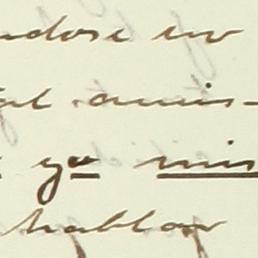 ndose en
tal amis-
ya mis
hablar